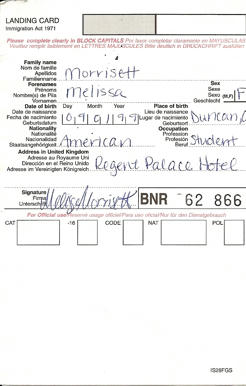 LANDING CARD
Immigration Act 1971
Please complete clearly in BLOCK CAPITALS Por favor completar claramente en MAYUSCULAS
Veuillez remplir lisiblement en LETTRES MAJUSCULES Bitte deutlich in DRUCKSCHRIFT ausfüllen
Family name
Nom de famille
Apellidos
Familienname
Morrisett
Forenames
Prénoms
Nombre(s) de Pila
Vornamen
Melissa
Sex
Sexe
Sexo
Geschlecht
(M,F) F
Date of birth Day Month Year
Date de naissance
Fecha de nacimiento
Geburtsdatum
Place of birth
Lieu de naissance
Lugar de nacimiento
Geburtsort
Duncan,
Nationality
Nationalité
Nacionalidad
Staatsangehörigkeit
American
Occupation
Profession
Profesión
Beruf
Student
Address in United Kingdom
Adresse au Royaume Uni
Dirección en el Reino Unido
Adresse im Vereinigten Königreich
Regent Palace Hotel
Signature
Firma
Unterschrift
Melissa Morrisett
BNR 62 866
For Official use/Reservé usage officiel/Para uso oficial/Nur für den Dienstgebrauch
CAT -16 CODE NAT POL
IS28FGS